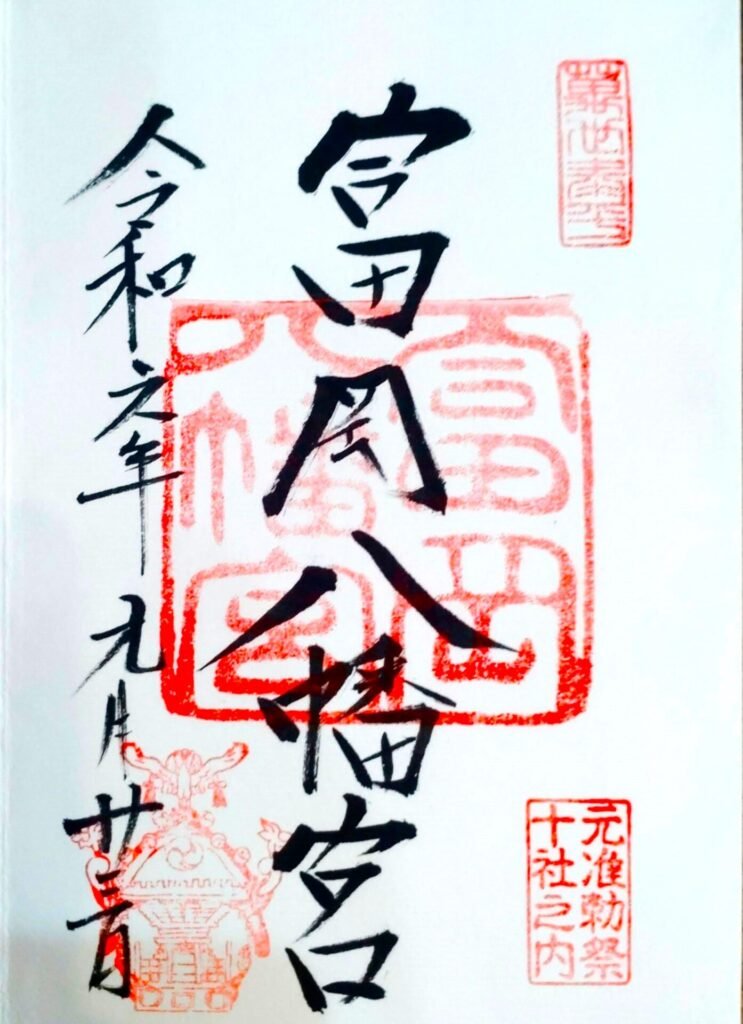 元准勅祭
十社之内
富岡八幡宮
富岡
八幡宮
令和元年九月廿三日